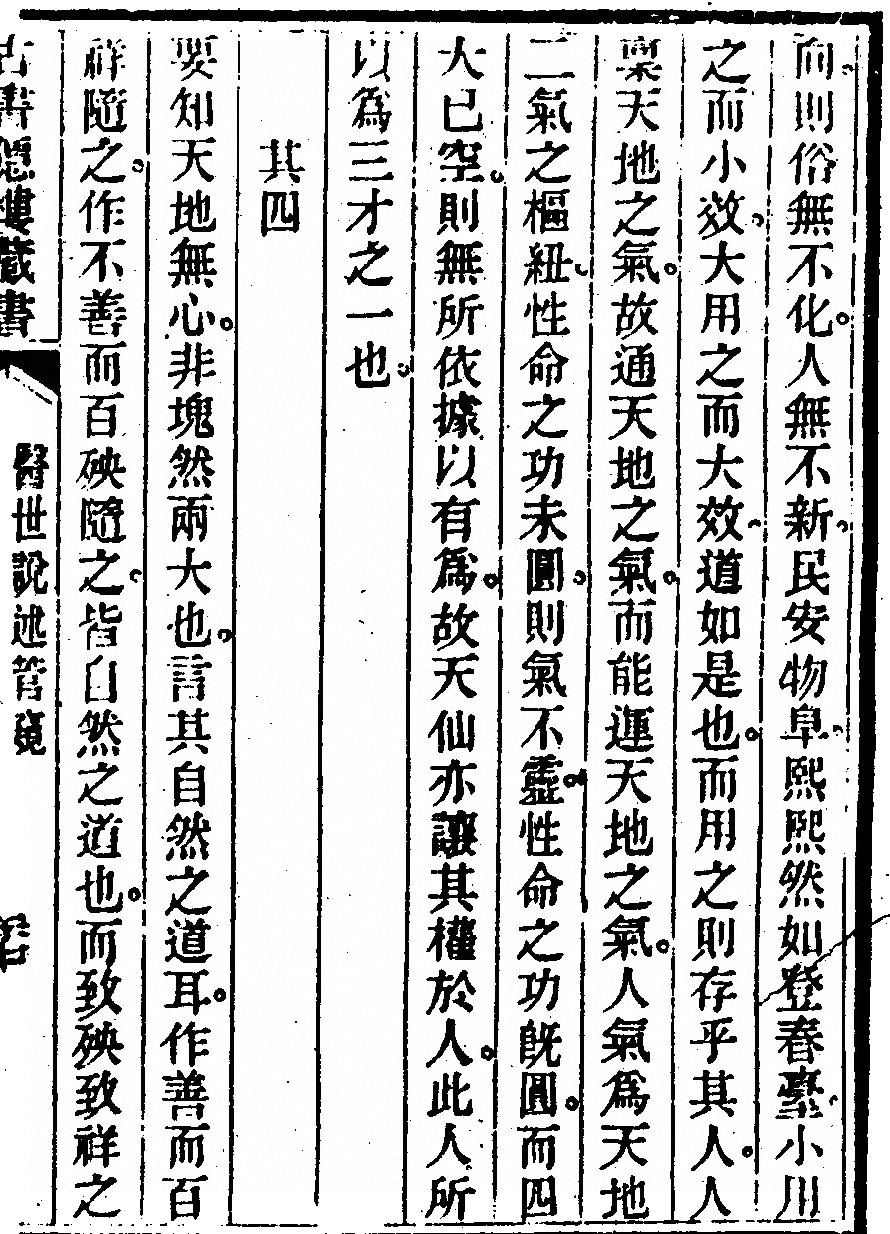 向則俗無不化人無不新民安物阜熙熙然如登春臺小用
之而小效大用之而大效道如是也而用之則存乎其人人
稟天地之氣故通天地之氣而能運天地之氣人氣為天地
二氣之樞紐性命之功未圓則氣不靈性命之功既圓而四
大已空則無所依據以有為故天仙亦讓其權於人此人所
以為三才之一也
其四
要知天地無心非塊然兩大也言其自然之道耳作善而百
祥隨之作不善而百殃隨之皆自然之道也而致殃致祥之
古書隱樓藏書
醫世說述管窺